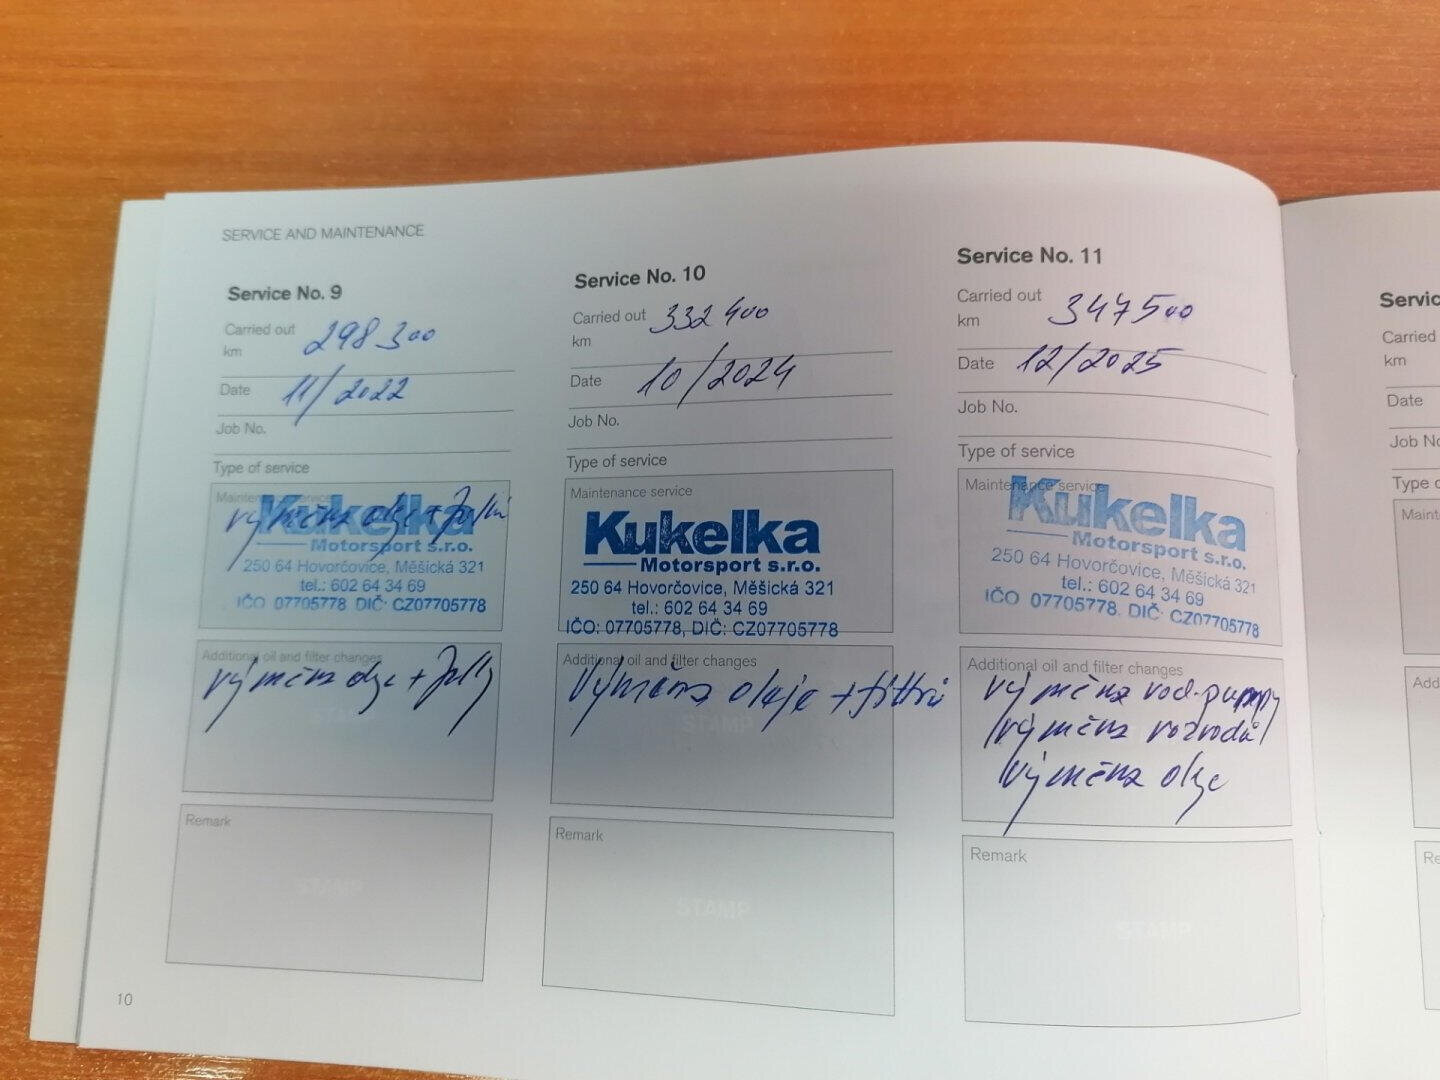 SERVICE AND MAINTENANCE
Service No. 9
Carried out
km 298 300
Date 11/2022
Job No.
Type of service
Maintenance service
výměna oleje +
Kukelka
Motorsport s.r.o.
250 64 Hovorčovice, Měšická 321
tel.: 602 64 34 69
IČO 07705778 DIČ: CZ07705778
Additional oil and filter changes
výměna oleje +
STAMP
Remark
STAMP
10
Service No. 10
Carried out
km 332 400
Date 10/2024
Job No.
Type of service
Maintenance service
Kukelka
Motorsport s.r.o.
250 64 Hovorčovice, Měšická 321
tel.: 602 64 34 69
IČO: 07705778, DIČ: CZ07705778
Additional oil and filter changes
Výměna oleje + filtrů
STAMP
Remark
STAMP
Service No. 11
Carried out
km 347 500
Date 12/2025
Job No.
Type of service
Maintenance service
Kukelka
Motorsport s.r.o.
250 64 Hovorčovice, Měšická 321
tel.: 602 64 34 69
IČO 07705778, DIČ: CZ07705778
Additional oil and filter changes
výměna vod. pumpy
výměna rozvodů
Výměna oleje
Remark
STAMP
Servic
Carried
km
Date
Job No
Type o
Maint
Add
Re